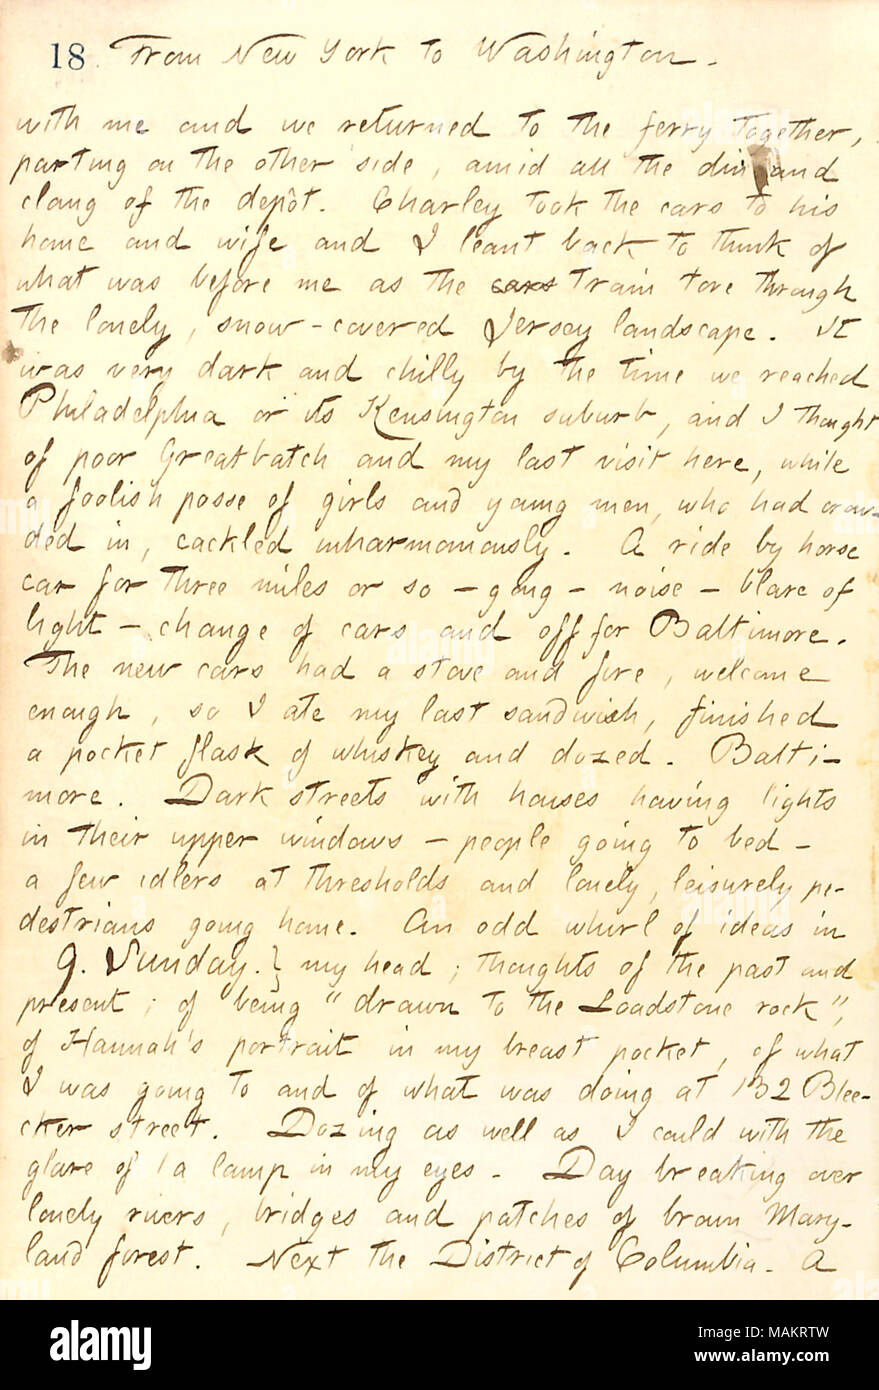 18 From New York to Washington.
with me and we returned to the ferry together,
parting on the other side, amid all the din and
clang of the depôt. Charley took the cars to his
home and wife and I leant back to think of
what was before me as the cars train tore through
the lonely, snow-covered Jersey landscape. It
was very dark and chilly by the time we reached
Philadelphia or its Kensington suburb, and I thought
of poor Greatbatch and my last visit here, while
a foolish posse of girls and young men, who had crow-
ded in, cackled inharmoniously. A ride by horse
car for three miles or so — going — noise — blare of
light — change of cars and off for Baltimore.
The new cars had a stove and fire, welcome
enough, so I ate my last sandwich, finished
a pocket flask of whiskey and dozed. Balti-
more. Dark streets with houses having lights
in their upper windows — people going to bed —
a few idlers at thresholds and lonely, leisurely pe-
destrians going home. An odd whirl of ideas in
9. Sunday.} my head; thoughts of the past and
present; of being "drawn to the Loadstone rock",
of Hannah's portrait in my breast pocket, of what
I was going to and of what was doing at 132 Blee-
cker street. Dozing as well as I could with the
glare of a lamp in my eyes. Day breaking over
lonely rivers, bridges and patches of brown Mary-
land forest. Next the District of Columbia. A
alamy
Image ID: MAKRTW
www.alamy.com